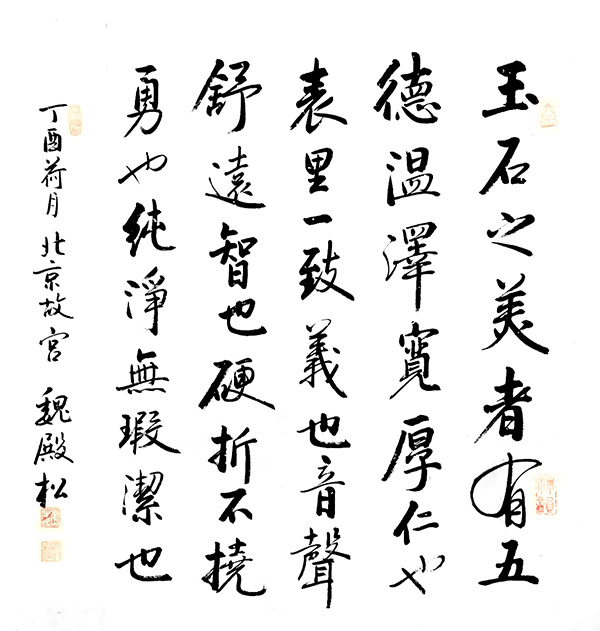 玉石之美者有五
德温澤寬厚仁也
表里一致義也音聲
舒遠智也硬折不撓
勇也純淨無瑕潔也
丁酉荷月北京故宫 魏殿松